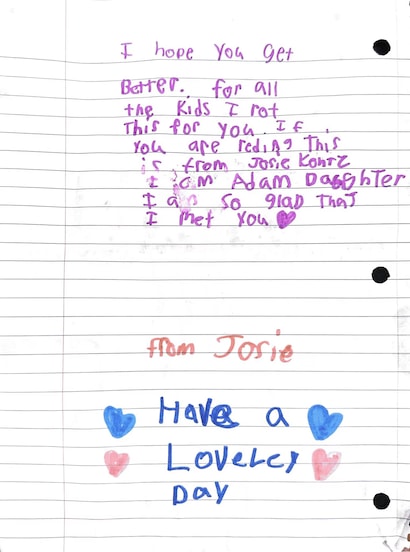 I hope You get
Better. for all
the Kids I rot
This for you. If
you are reding This
is from Josie Kontz
I am Adam Daughter
I am So glad That
I met You
from Josie
Have a
Lovelcy
Day